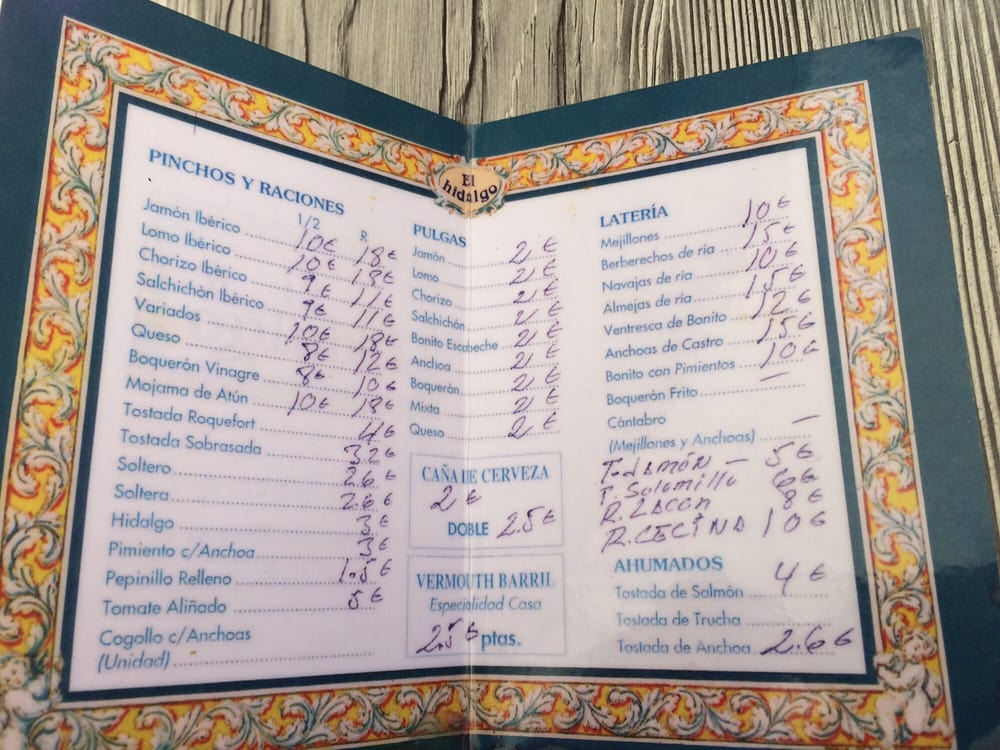 El hidalgo
PINCHOS Y RACIONES
1/2 R
Jamón Ibérico 10€ 18€
Lomo Ibérico 10€ 18€
Chorizo Ibérico 9€ 11€
Salchichón Ibérico 9€ 11€
Variados 10€ 18€
Queso 8€ 12€
Boquerón Vinagre 8€ 10€
Mojama de Atún 10€ 18€
Tostada Roquefort 4€
Tostada Sobrasada 3.2€
Soltero 2.6€
Soltera 2.6€
Hidalgo 3€
Pimiento c/Anchoa 3€
Pepinillo Relleno 1.5€
Tomate Aliñado 5€
Cogollo c/Anchoas
(Unidad)
PULGAS
Jamón 2€
Lomo 2€
Chorizo 2€
Salchichón 2€
Bonito Escabeche 2€
Anchoa 2€
Boquerón 2€
Mixta 2€
Queso 2€
CAÑA DE CERVEZA
2€
DOBLE 2.5€
VERMOUTH BARRIL
Especialidad Casa
2.5€ ptas.
LATERÍA
Mejillones 10€
Berberechos de ría 15€
Navajas de ría 10€
Almejas de ría 15€
Ventresca de Bonito 12€
Anchoas de Castro 15€
Bonito con Pimientos 10€
Boquerón Frito —
Cántabro
(Mejillones y Anchoas) —
T. JAMÓN — 5€
T. Solomillo 6€
R. LACON 8€
R. CECINA 10€
AHUMADOS
Tostada de Salmón 4€
Tostada de Trucha
Tostada de Anchoa 2.6€